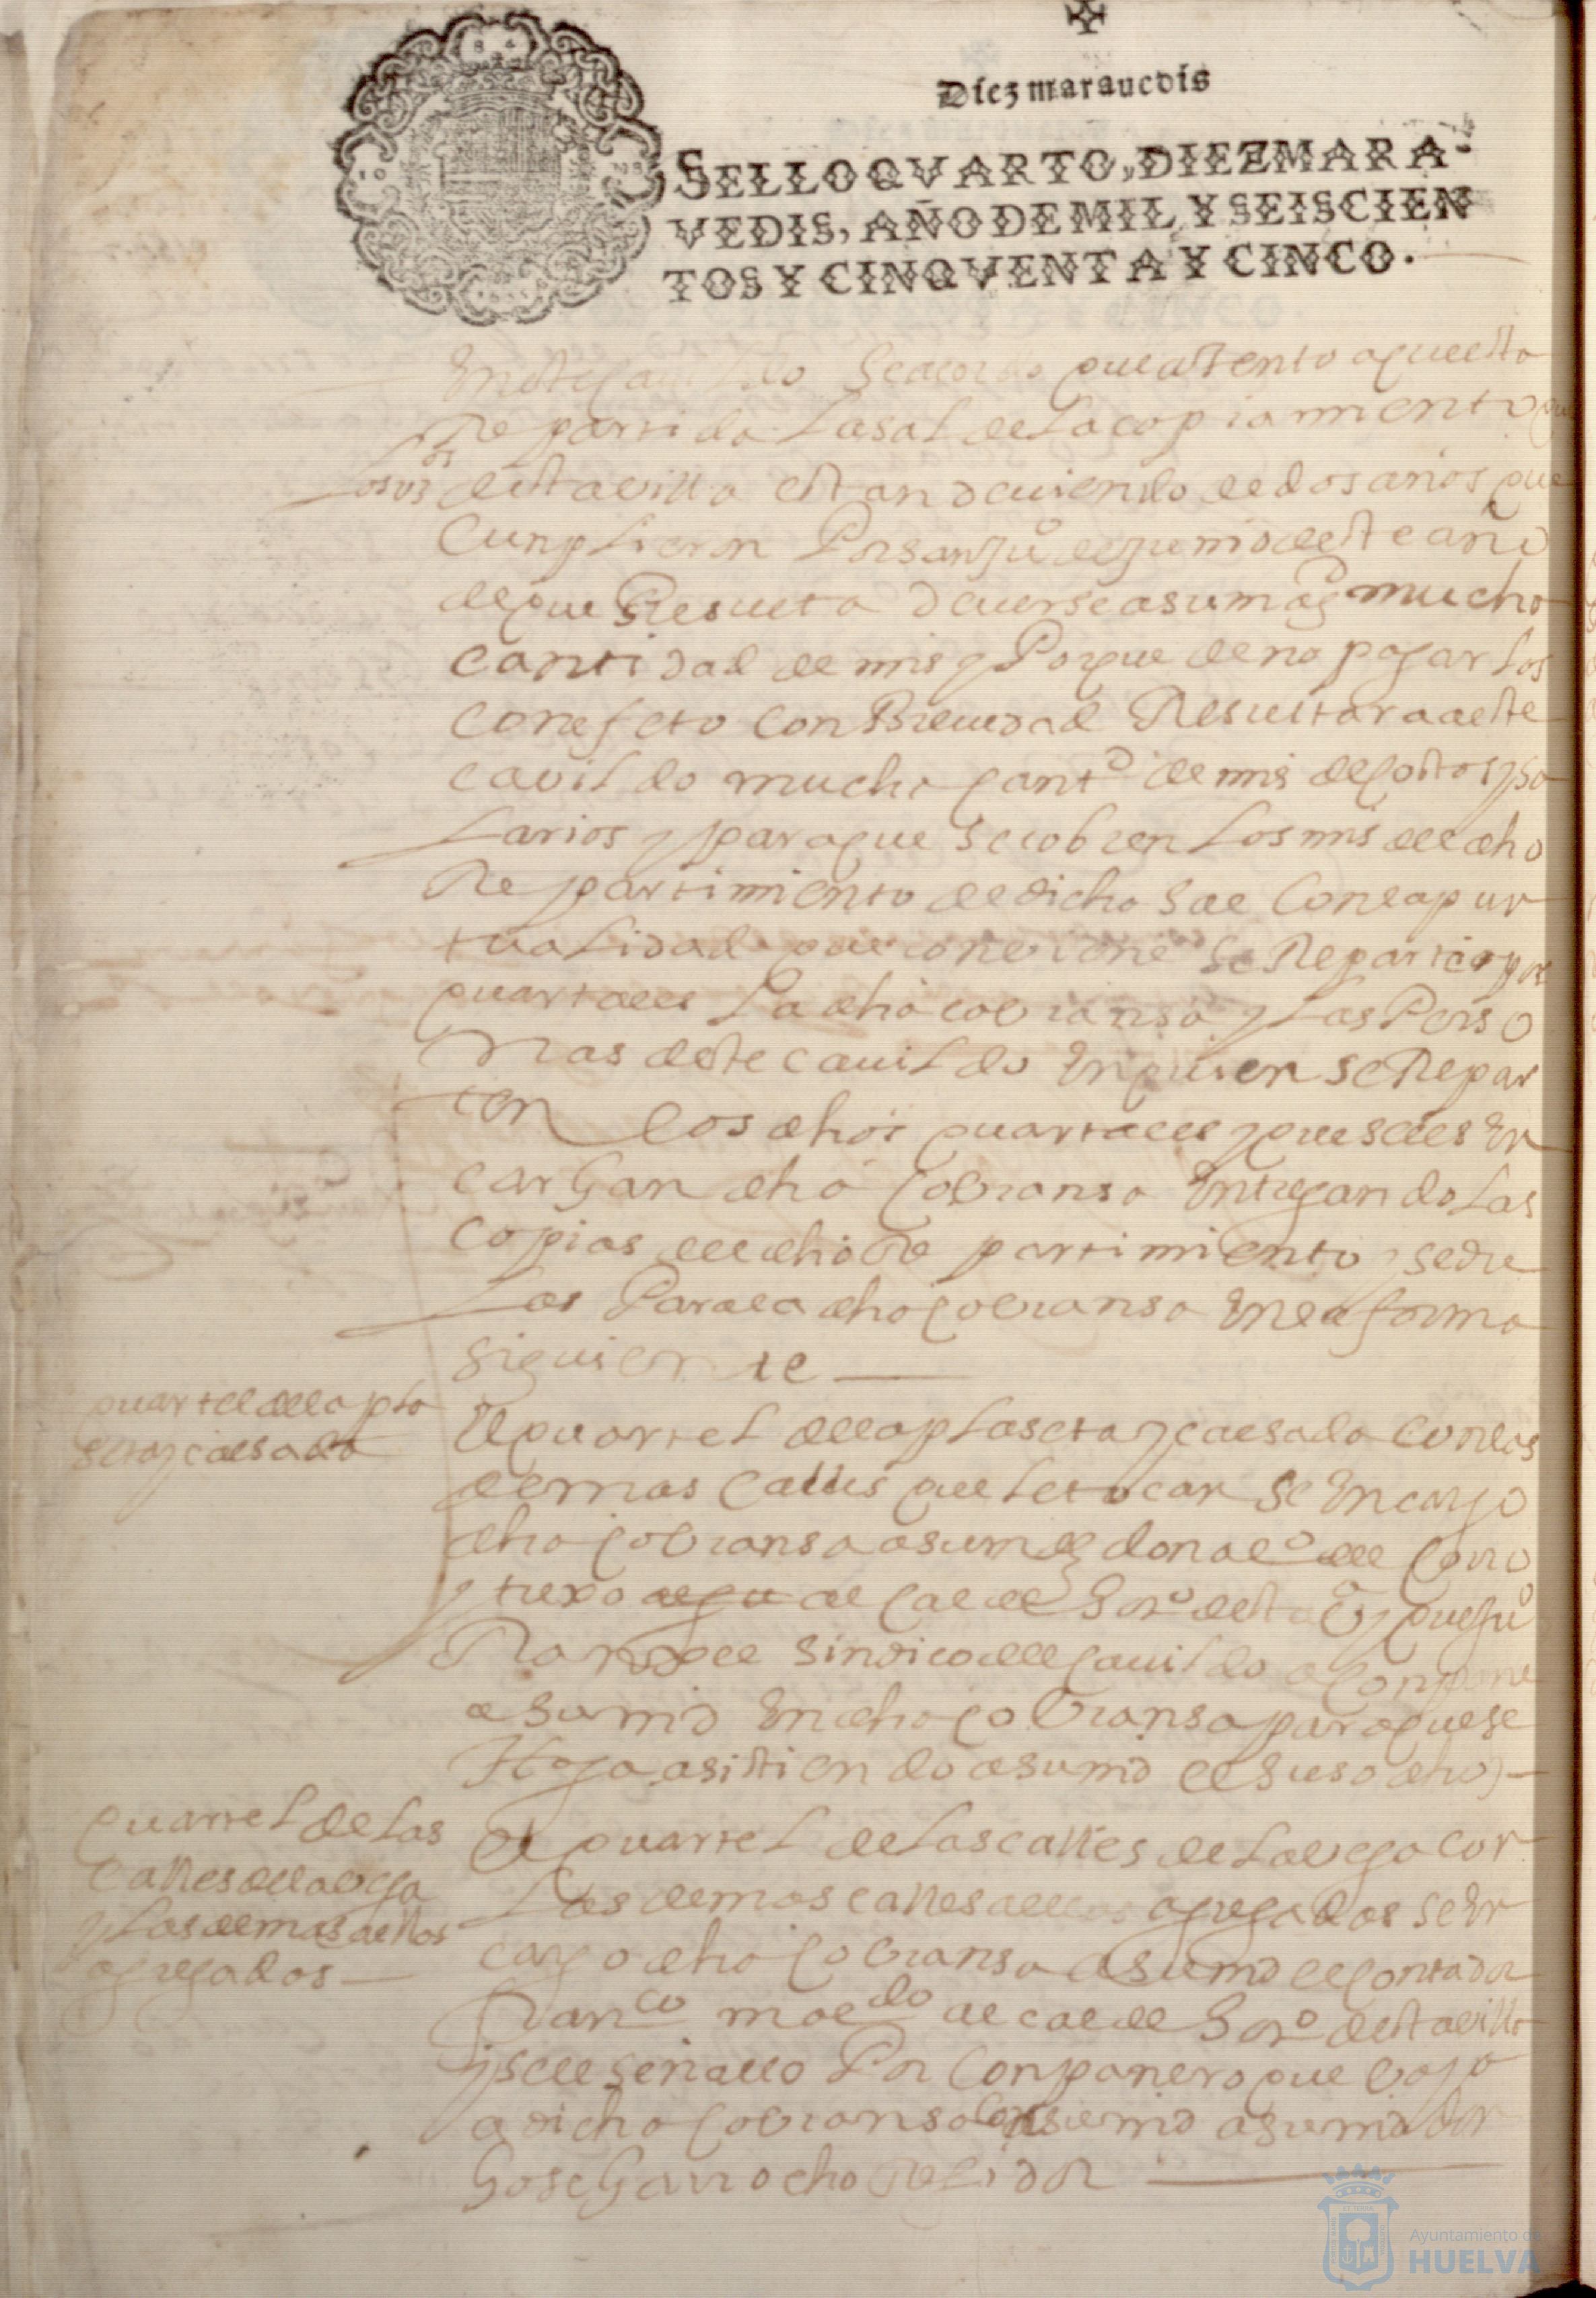 Diez marauedis
SELLO QVARTO, DIEZ MARA-
VEDIS, AÑO DE MIL Y SEISCIEN
TOS Y CINQVENTA Y CINCO.
En este cauildo se acordo que atento aque esta
Repartido la sal del acopiamiento que
los vos desta villa estan deuiendo de dos años que
cunplieron Por san Juo de junio deste año
de que Resulta deuerse a su magd mucha
cantidad de mrs y Porque de no pagarlos
con efeto con Breuedad Resultara a este
cauildo mucha cantd de mrs de costos y sa
larios y para que se cobren los mrs del dho
Repartimiento de dicha sal con la puntualidad que conviene se Repartio por
quarteles la dha cobransa y las Perso
nas deste cauildo en quien se Repar
ten los dhos quarteles y que se les en
cargan dha cobransa entregandolas
copias del dho Repartimiento, sedu
las Para la dha cobransa en la forma
siguiente
quartel de la pla
seta y calsada
El quartel de la plaseta y calsada con las
demas calles que le tocan se encargo
dha cobransa a su md don alo de
y texo de al calde horo desta va y que juo
sindico del cauildo aconpane
a su md en dha cobransa para que se
Haga asistiendo a su md el susodho
quartel de las
calles de la vega
y las demas a ellos
agregados
El quartel de las calles de la vega con
las demas calles a ellos agregadas se en
cargo dha cobransa a su md el contador
Franco maldo alcalde horo desta villa
y se le señallo Por conpanero que vaya
a dicha cobransa con su md a su md don
Jose Garrocho Rejidor
Ayuntamiento de
HUELVA